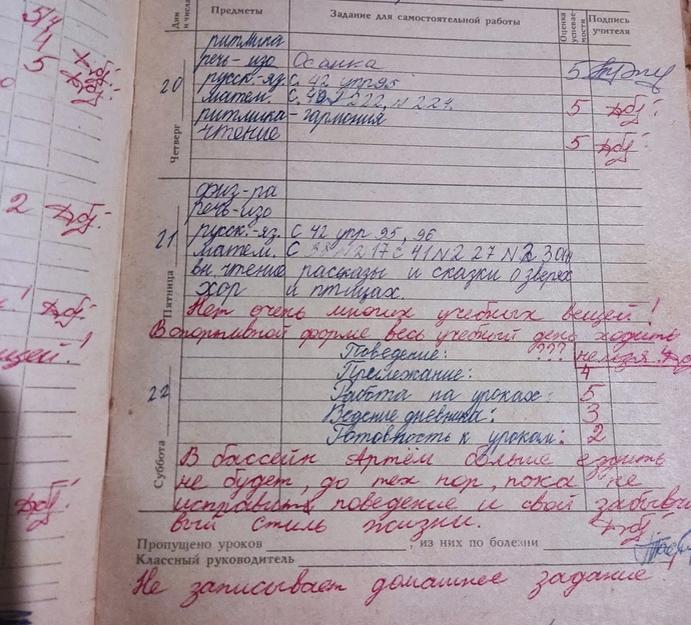 5/4
4
5
2
щей!
Дни и числа
Предметы
Задание для самостоятельной работы
Оценка успеваемости
Подпись учителя
20
Четверг
ритмика
речь-изо Осанка
русск.-яз. с. 42 упр 95 5
матем. с. № 222, N 224. 5
ритмика - гармония
чтение 5
21
Пятница
физ-ра
речь-изо
русск.-яз. с 42 упр 95, 96
матем. с 38 N 217 с 41 N 227 N 230
вн. чтение рассказы и сказки о зверях
хор и птицах.
Нет очень многих учебных вещей!
В спортивной форме весь учебный день ходить
нельзя.
22
Суббота
Поведение: ???
Прилежание: 4
Работа на уроках: 5
Ведение дневника: 3
Готовность к урокам: 2
В бассейн Артём больше ездить
не будет, до тех пор, пока не
исправит поведение и свой забывчи
вый стиль жизни.
Пропущено уроков , из них по болезни
Классный руководитель
Не записывает домашнее задание